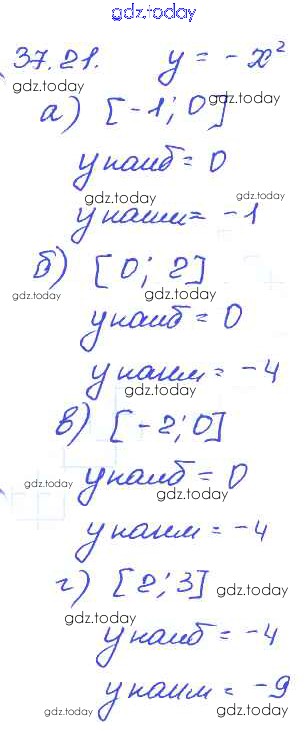 gdz.today
37.21. y = -x²
gdz.today
а) [-1; 0]
gdz.today
y наиб = 0
gdz.today
gdz.today
y наим = -1
gdz.today
б) [0; 2]
gdz.today
gdz.today
y наиб = 0
gdz.today
y наим = -4
gdz.today
в) [-2; 0]
gdz.today
y наиб = 0
gdz.today
gdz.today
y наим = -4
г) [2; 3]
gdz.today
gdz.today
y наиб = -4
gdz.today
y наим = -9
gdz.today
gdz.today